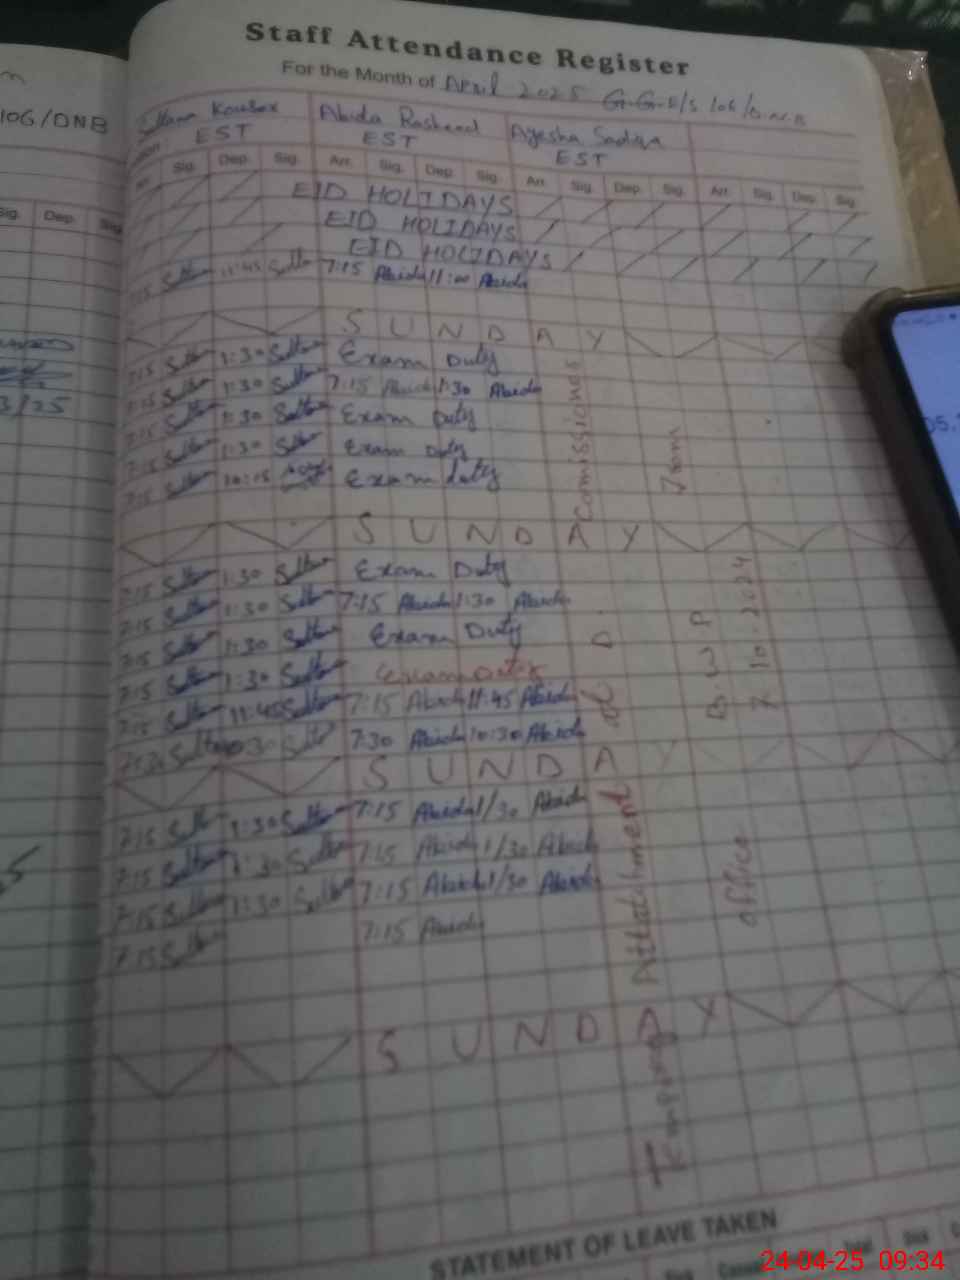 Staff Attendance Register
For the Month of April 2025 G.G.E/S 106/D.N.B
106/DNB
Sultana Kousar Abida Rasheed Ayesha Sadiqa
EST EST EST
Sig. Dep. Sig. Arr. Sig. Dep. Sig. Arr. Sig. Dep. Sig. Arr. Sig. Dep. Sig.
Sig. Dep. Sig.
EID HOLIDAYS
EID HOLIDAYS
EID HOLIDAYS
7:15 Sultana 11:45 Sultana 7:15 Abida 11:00 Abida
SUNDAY
7:15 Sultana 1:30 Sultana Exam Duty
7:15 Sultana 1:30 Sultana 7:15 Abida 1:30 Abida
7:15 Sultana 1:30 Sultana Exam Duty
7:15 Sultana 1:30 Sultana Exam Duty
7:15 Sultana 10:15 Exam duty
SUNDAY
7:15 Sultana 1:30 Sultana Exam Duty
7:15 Sultana 1:30 Sultana 7:15 Abida 1:30 Abida
7:15 Sultana 1:30 Sultana Exam Duty
7:15 Sultana 1:30 Sultana Exam Duty
7:15 Sultana 11:45 Sultana 7:15 Abida 11:45 Abida
7:30 Sultana 10:30 Sultana 7:30 Abida 10:30 Abida
SUNDAY
7:15 Sultana 1:30 Sultana 7:15 Abida 1/30 Abida
7:15 Sultana 1:30 Sultana 7:15 Abida 1/30 Abida
7:15 Sultana 1:30 Sultana 7:15 Abida 1/30 Abida
7:15 Sultana 7:15 Abida
SUNDAY
Attachment at D.
Commissioner
office B W P
7.10.2024
from
3/25
STATEMENT OF LEAVE TAKEN
24-04-25 09:34